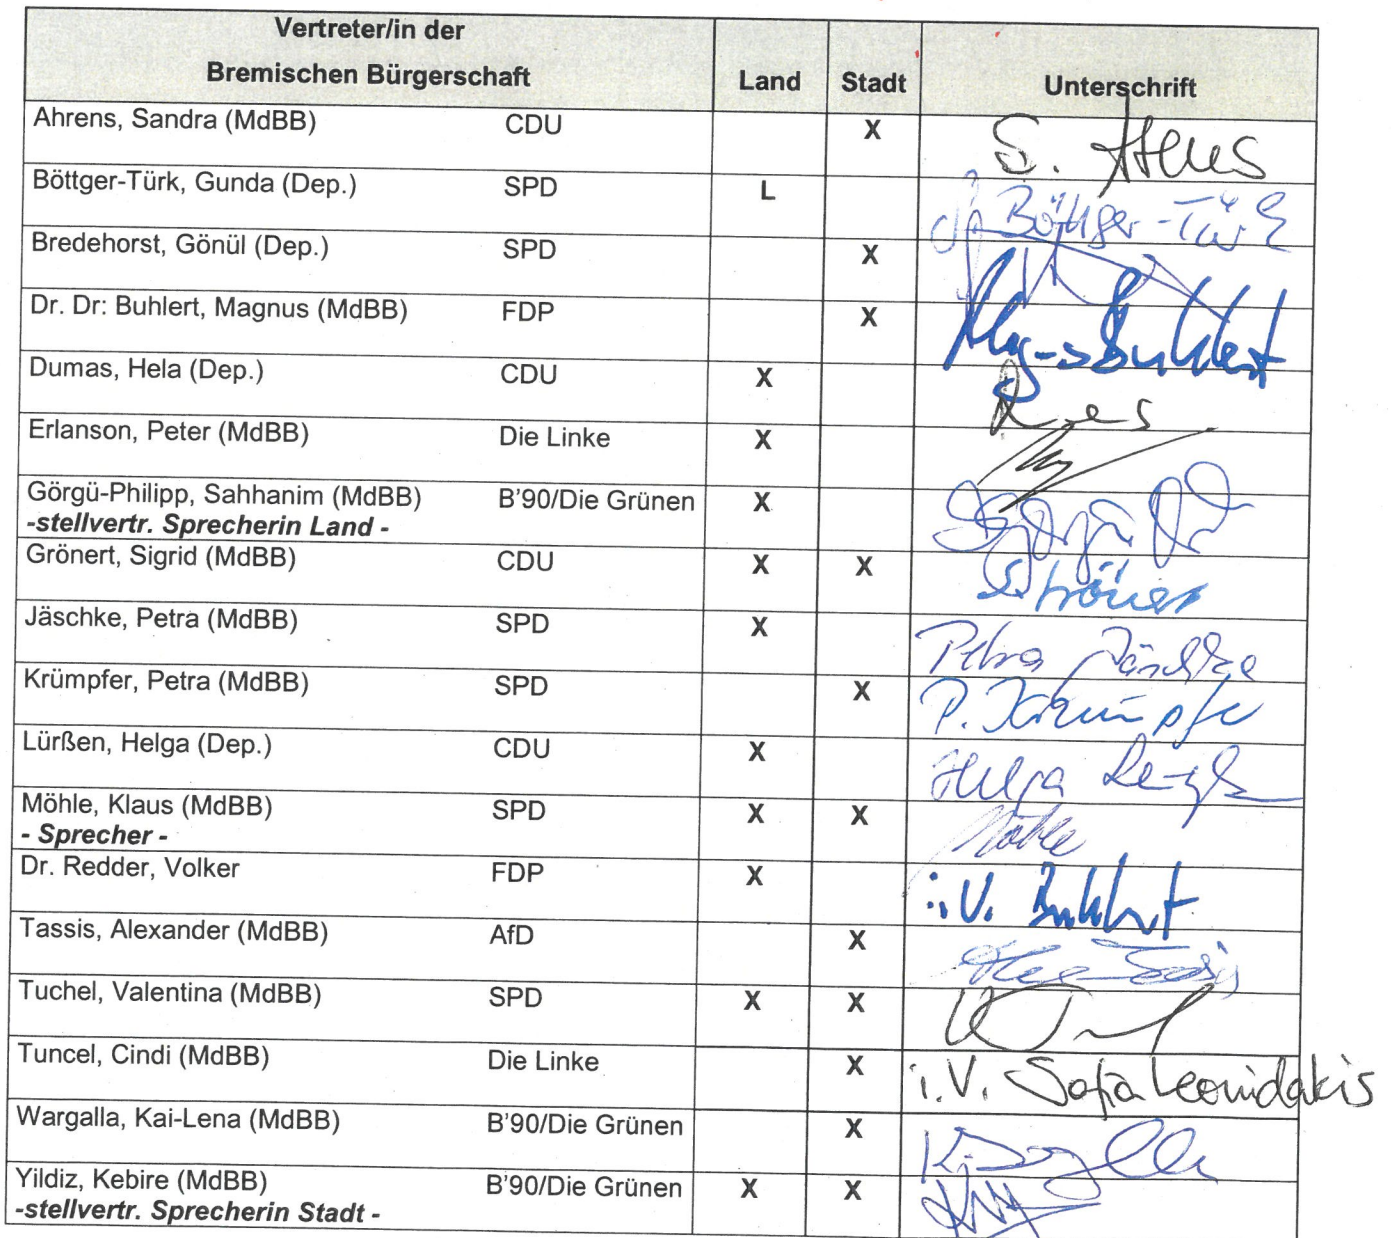 Vertreter/in der
Bremischen Bürgerschaft Land Stadt Unterschrift
Ahrens, Sandra (MdBB) CDU X S. Ahrens
Böttger-Türk, Gunda (Dep.) SPD L Böttger-Türk
Bredehorst, Gönül (Dep.) SPD X
Dr. Dr: Buhlert, Magnus (MdBB) FDP X Magnus Buhlert
Dumas, Hela (Dep.) CDU X
Erlanson, Peter (MdBB) Die Linke X
Görgü-Philipp, Sahhanim (MdBB) B'90/Die Grünen X
-stellvertr. Sprecherin Land -
Grönert, Sigrid (MdBB) CDU X X S. Grönert
Jäschke, Petra (MdBB) SPD X Petra Jäschke
Krümpfer, Petra (MdBB) SPD X P. Krümpfer
Lürßen, Helga (Dep.) CDU X Helga
Möhle, Klaus (MdBB) SPD X X Möhle
- Sprecher -
Dr. Redder, Volker FDP X i.V. Buhlert
Tassis, Alexander (MdBB) AfD X
Tuchel, Valentina (MdBB) SPD X X
Tuncel, Cindi (MdBB) Die Linke X i.V. Sofia Leonidakis
Wargalla, Kai-Lena (MdBB) B'90/Die Grünen X
Yildiz, Kebire (MdBB) B'90/Die Grünen X X
-stellvertr. Sprecherin Stadt -